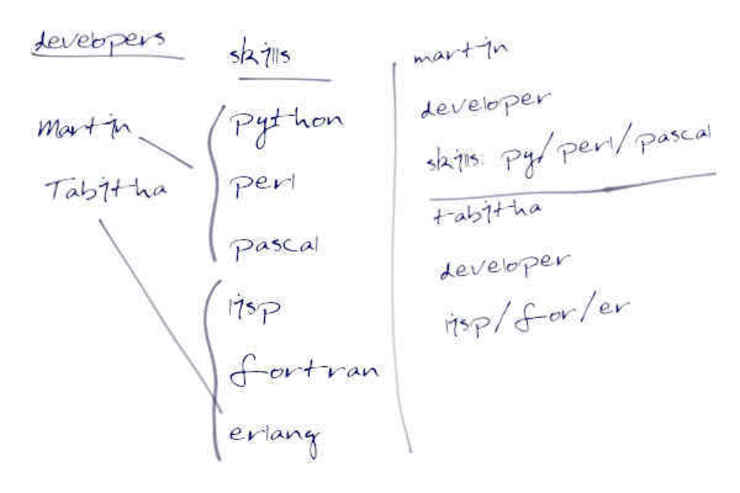 developers
skills
Martin
Tabitha
python
perl
pascal
lisp
fortran
erlang
martin
developer
skills: py/perl/pascal
tabitha
developer
lisp/for/er